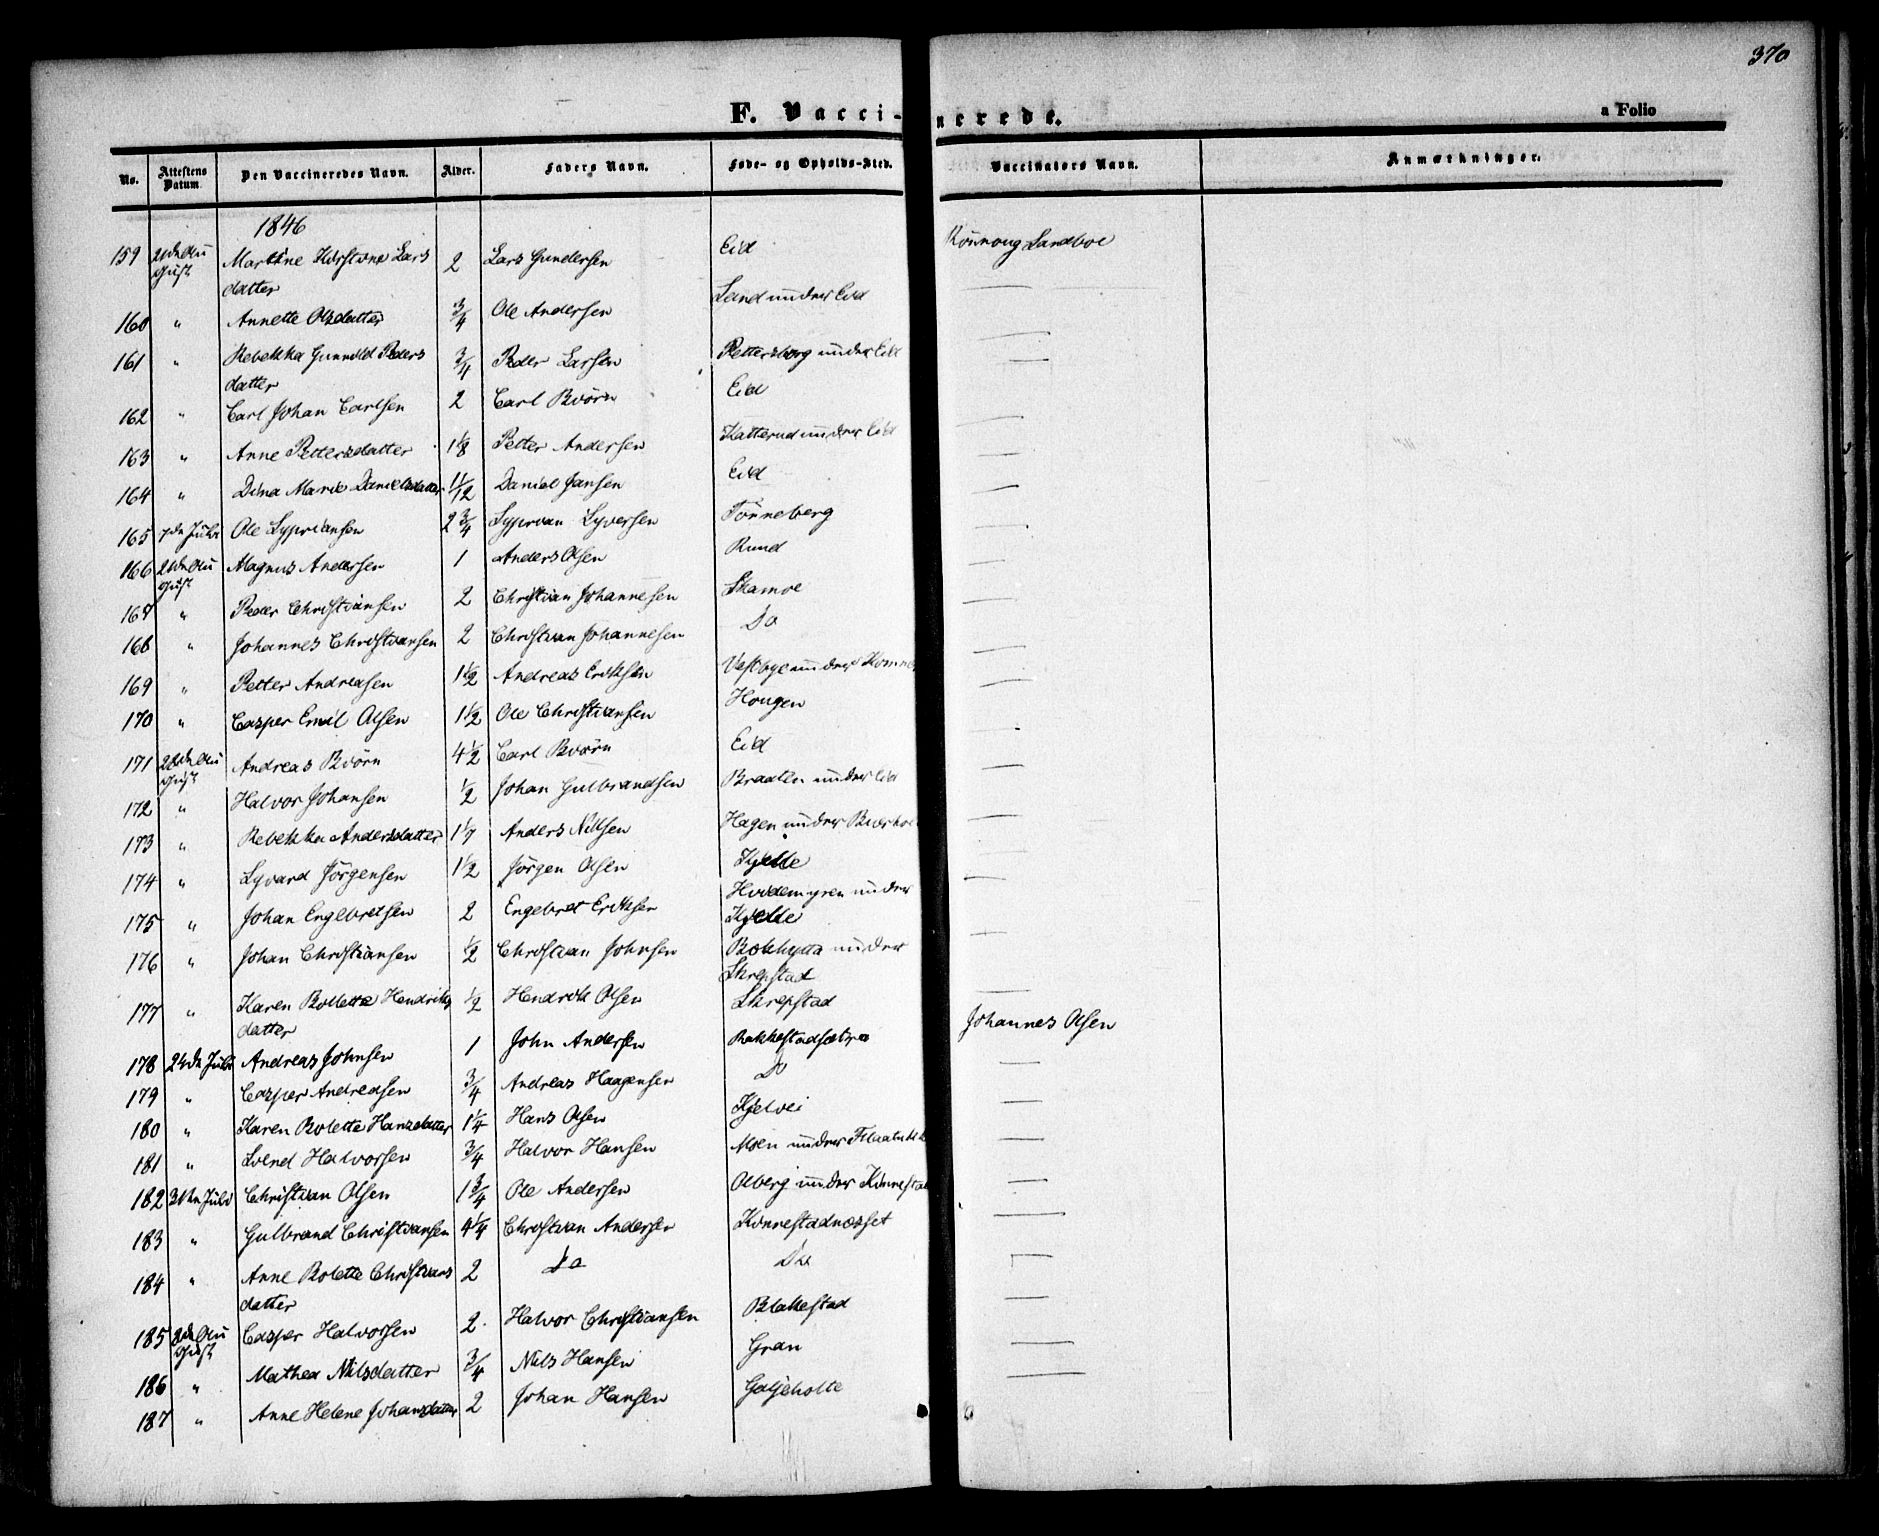 370
F. Vaccinerede.
a Folio
No. Attestens Datum Den Vaccineredes Navn. Alder. Faders Navn. Føde- og Opholds-Sted. Vaccinators Navn. Anmærkninger.
1846
159 Martine Kirstine Lars 2 Lars Gundersen Eid
gust datter
160 " Annette Olsdatter 3/4 Ole Andersen Sand under Eid
161 " Rebekka Gunnild Peders 3/4 Peder Larsen Pettersborg under Eid
datter
162 " Carl Johan Carlsen 2 Carl Biörn Eid
163 " Anne Pettersdatter 1 1/8 Petter Andersen Katterud under Eid
164 " Dina Marie Danielsdatter 11/12 Daniel Jansen Eid
165 7de Juli Ole Sypriansen 2 3/4 Syprian Syversen Tönneberg
166 21de Au Magnus Andersen 1 Anders Olsen Rund
gust
167 " Peder Christiansen 2 Christian Johannesen Skamoe
168 " Johannes Christiansen 2 Christian Johannesen Do
169 " Petter Andreasen 1 1/2 Andreas Eriksen Vestbye under
170 " Casper Emil Olsen 1 1/2 Ole Christiansen Hougen
171 Au Andreas Biörn 4 1/2 Carl Biörn Eid
gust
172 " Halvor Johansen 1/2 Johan Gulbrandsen Braaten under Eid
173 " Rebekka Andersdatter 1 1/7 Anders Nilsen Hagen under
174 " Syvard Jörgensen 1 1/2 Jörgen Olsen Kjelle
175 " Johan Engebretsen 2 Engebret Eriksen under
Kjelle
176 " Johan Christiansen 1/2 Christian Johnsen under
Skrepstad
177 " Karen Bolette Hendriks 1/2 Hendrik Olsen Skrepstad
datter
Johannes Olsen
178 24de Juli Andreas Johnsen 1 John Andersen Rakkestadsætra
179 " Casper Andreasen 3/4 Andreas Haagensen Do
180 " Karen Bolette Hansdatter 1 1/4 Hans Olsen Kjelvei
181 " Svend Halvorsen 3/4 Halvor Hansen Moen under
182 31te Juli Christian Olsen 1 3/4 Ole Andersen Olberg under
183 " Gulbrand Christiansen 4 1/4 Christian Andersen Kinnestadnæsset
184 " Anne Bolette Christians 2 Do Do
datter
185 Au Casper Halvorsen 2 Halvor Christiansen Blakestad
gust
186 " Mathea Nilsdatter 3/4 Nils Hansen Gran
187 " Anne Helene Johansdatter 2 Johan Hansen Galjeholte